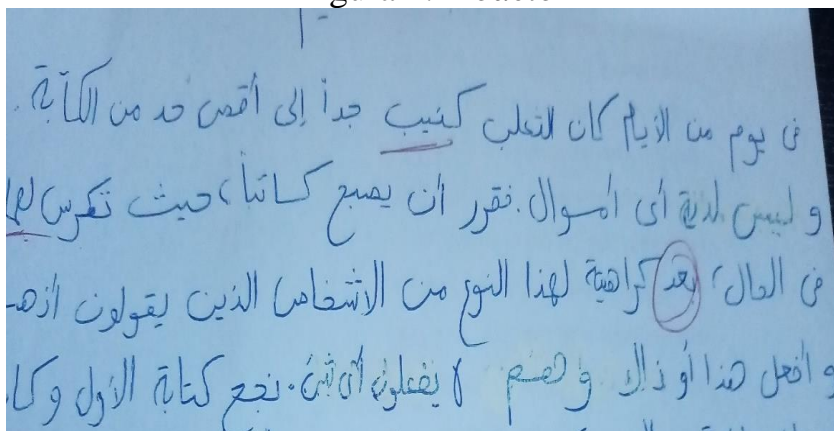 فى يوم من الأيام كان الثعلب كئيب جداً إلى أقصى حد من الكآبة.
و ليس لدية أى أموال. فقرر أن يصبح كاتباً، حيث تكرس لها
فى الحال، بعد كراهية لهذا النوع من الاشخاص الذين يقولون أذهب
و أفعل هذا أو ذاك و هم لا يفعلون أى شئ. نجح كتابة الأول وكا